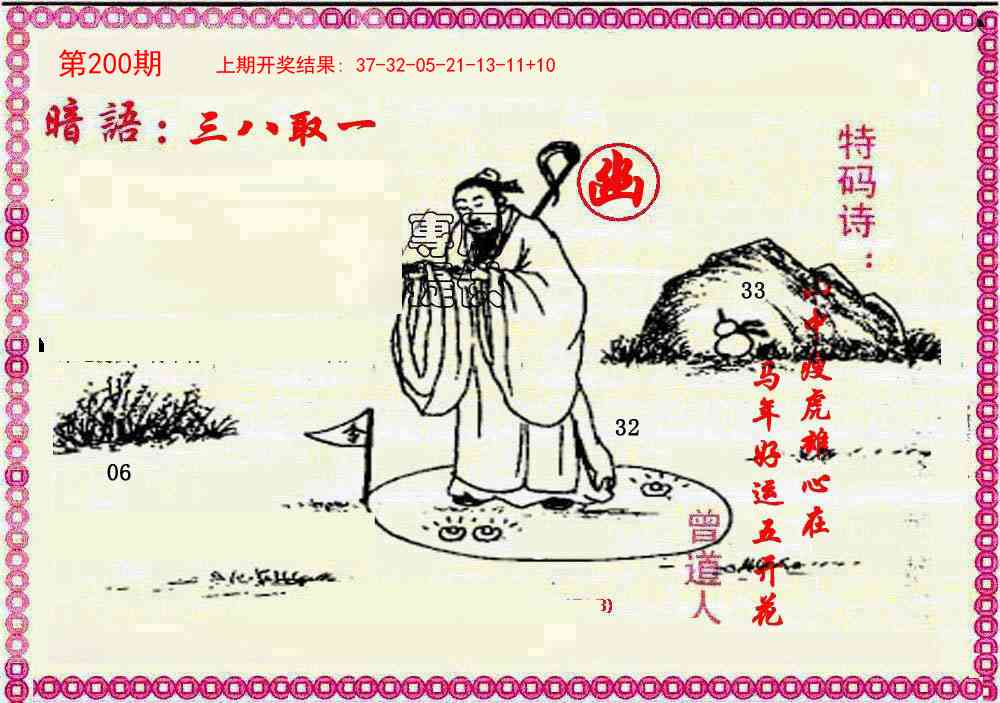 第200期
上期开奖结果: 37-32-05-21-13-11+10
暗語：三八取一
幽
特码诗：
山中瘦虎雄心在
马年好运五开花
33
32
令
06
曾道人